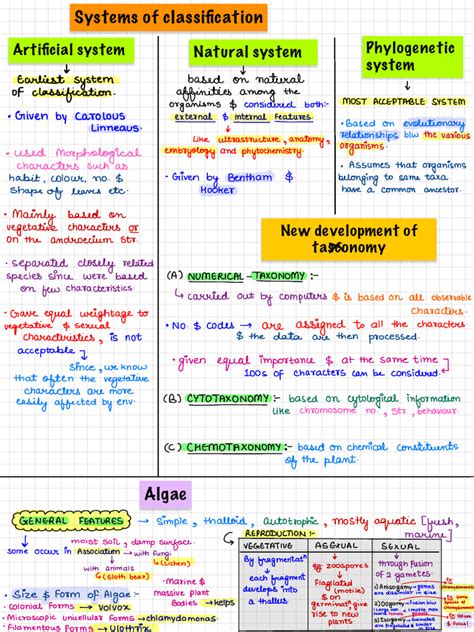 Systems of classification
Artificial system
Earliest system
of classification.
• Given by Carolous
Linneaus.
• used Morphological
characters such as
habit, colour, no. $
Shape of leaves etc.
• Mainly based on
vegetative characters or
on the androecium str.
• separated closely related
species since were based
on few characteristics.
• Gave equal weightage to
vegetative $ sexual
characteristics, is not
acceptable
Since, we know
that often the vegetative
characters are more
easily affected by env.
Natural system
based on natural
affinities among the
organisms $ considered both:-
external $ internal features.
Like ultrastructure, anatomy,
embryology and phytochemistry.
• Given by Bentham $
Hooker
Phylogenetic
system
MOST ACCEPTABLE SYSTEM
• Based on evolutionary
relationships b/w the various
organisms.
• Assumes that organisms
belonging to same taxa
have a common ancestor.
New development of
taxonomy
(A) NUMERICAL - TAXONOMY :-
carried out by computers $ is based on all observable
characters.
• No. $ codes → are assigned to all the characters
$ the data are then processed.
• given equal importance $ at the same time
100s of characters can be considered.
(B) CYTOTAXONOMY :- based on cytological information
like chromosome no., str., behaviour.
(C) CHEMOTAXONOMY :- based on chemical constituents
of the plant.
Algae
GENERAL FEATURES → simple, thalloid, autotrophic, mostly aquatic [fresh,
marine]
moist soil, damp surface.
some occur in Association → with fungi
(lichen)
with animals
(sloth bear)
• Size $ Form of Algae:-
• Colonial Forms → Volvox
• Microscopic unicellular Forms → chlamydomonas
• Filamentous Forms → Ulothrix
• Marine $
massive plant
Bodies → kelps
REPRODUCTION :-
VEGETATIVE
By fragmentatn
each fragment
develops into
a thallus
ASEXUAL
eg: zoospores
Flagilated
(motile) $
on germinatn give
rise to new
plants
SEXUAL
through fusion
of 2 gametes
1) Anisogamy - gametes
are dissimilar in size
2) Oogamy - Fusion b/w